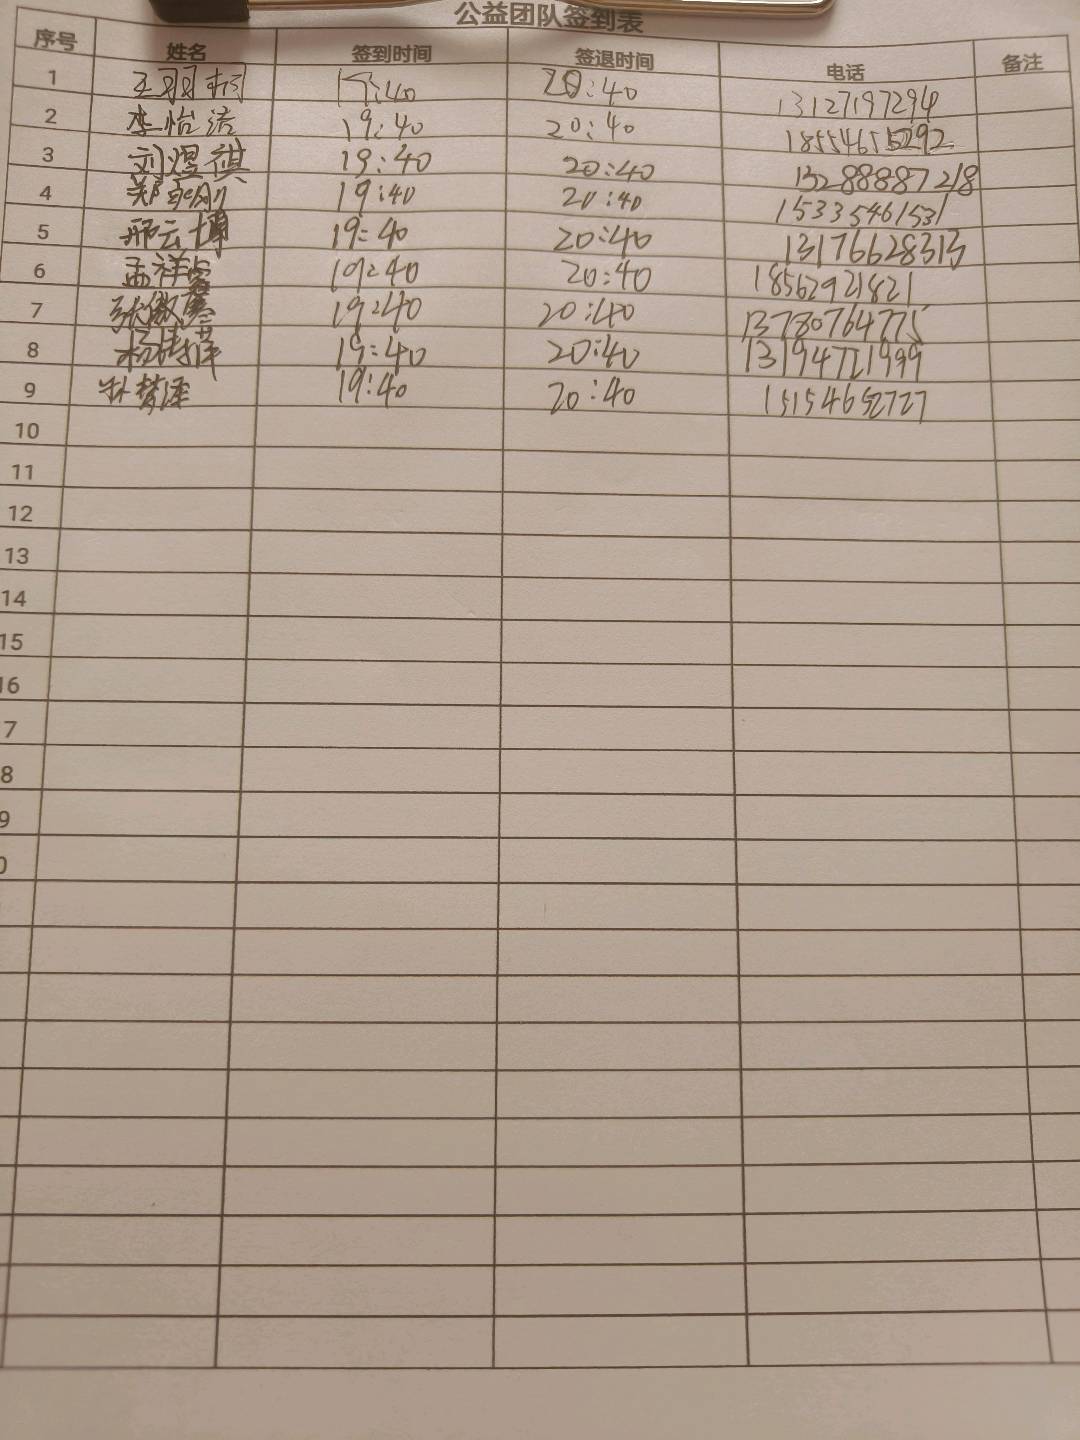 公益团队签到表
序号 姓名 签到时间 签退时间 电话 备注
1 王羽桐 19:40 20:40 13127197294
2 李怡洁 19:40 20:40 18554655292
3 刘煜祺 19:40 20:40 13288887218
4 郑 19:40 20:40 15335461531
5 邢云博 19:40 20:40 13176628313
6 孟祥 19:40 20:40 18562921821
7 张傲寒 19:40 20:40 13780764775
8 杨 19:40 20:40 13194721999
9 朴梦泽 19:40 20:40 15154652727
10
11
12
13
14
15
16
7
8
9
0